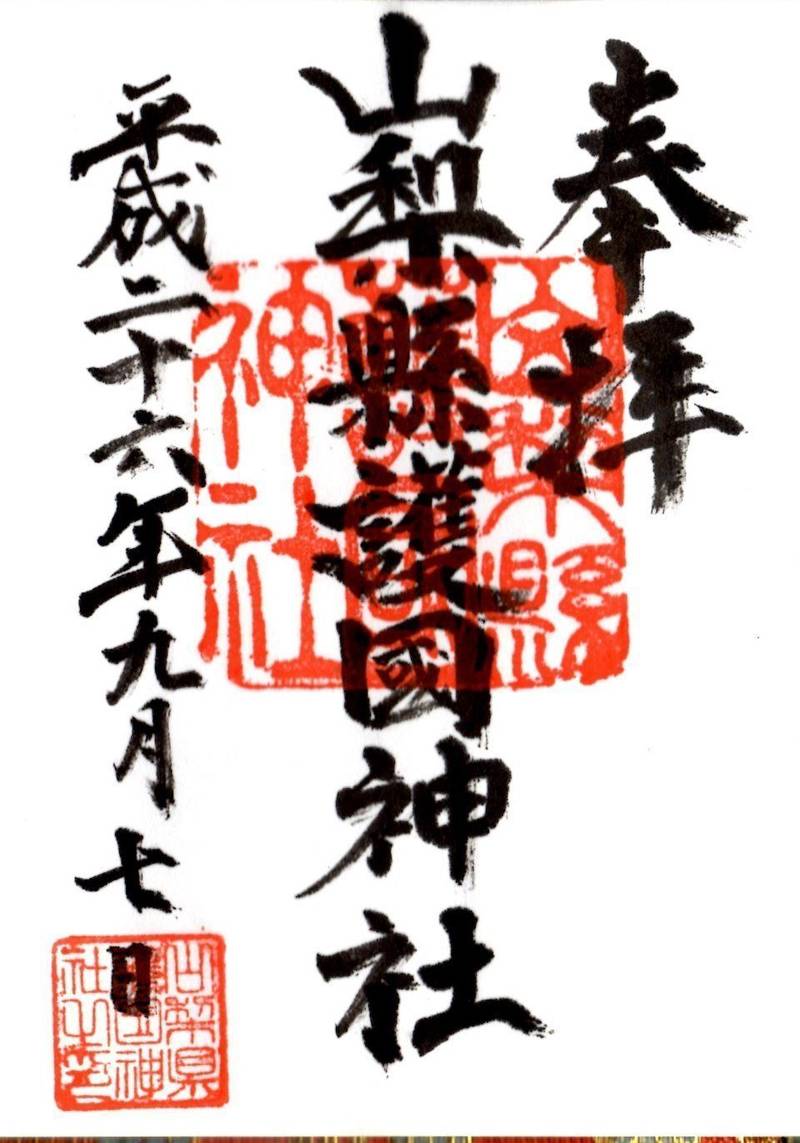 奉拝
山梨縣護國神社
平成二十六年九月七日
山梨縣護國神社
山梨県護国神社之印